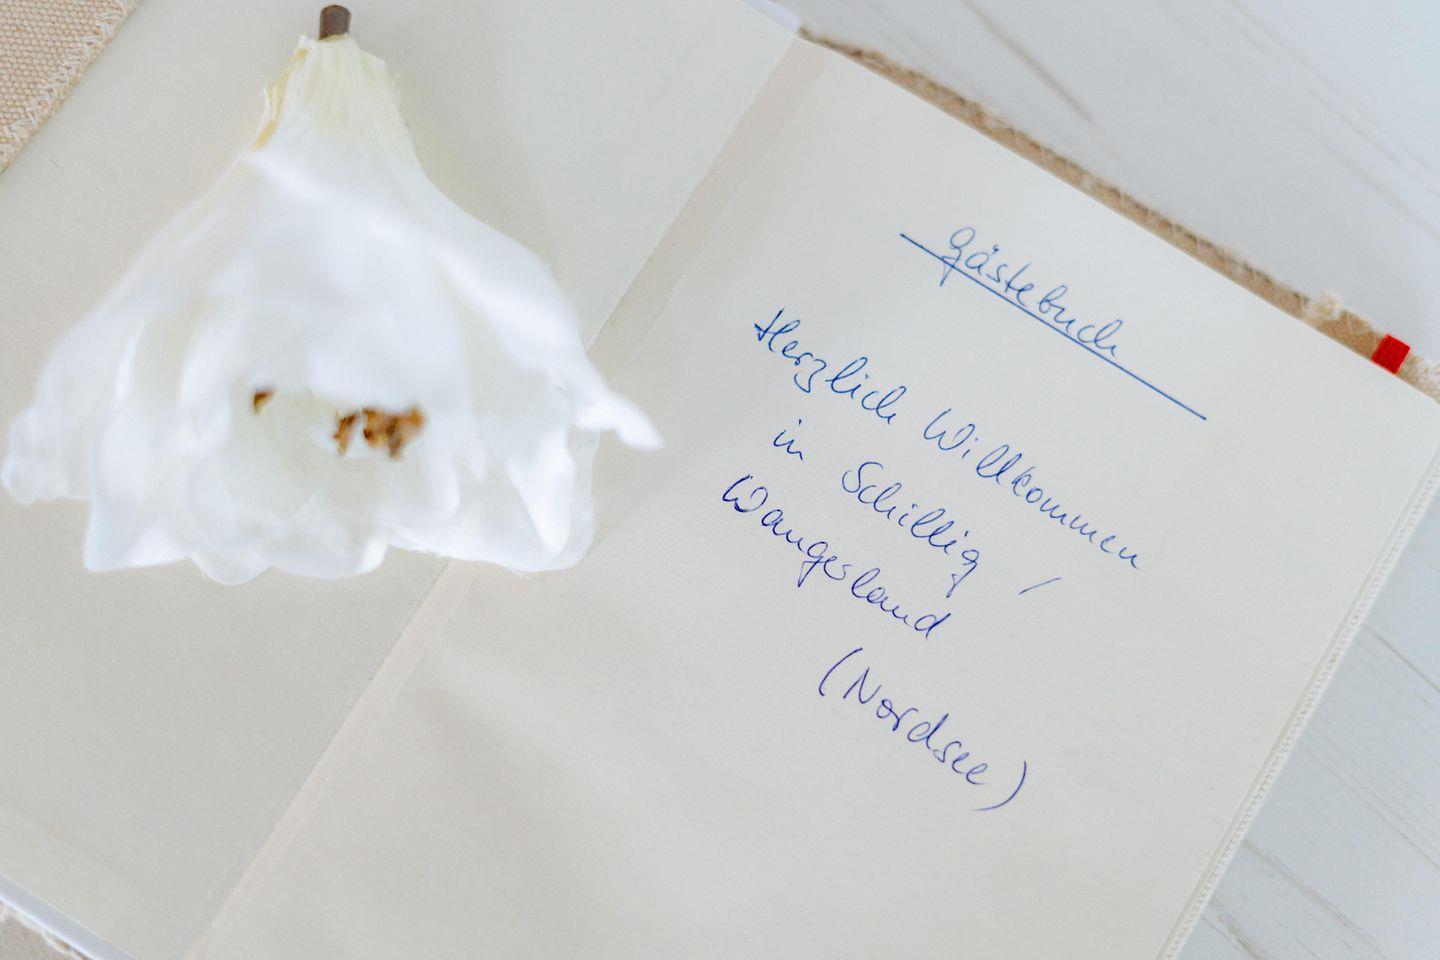 Gästebuch
Herzlich Willkommen
in Schillig /
Wangerland
(Nordsee)